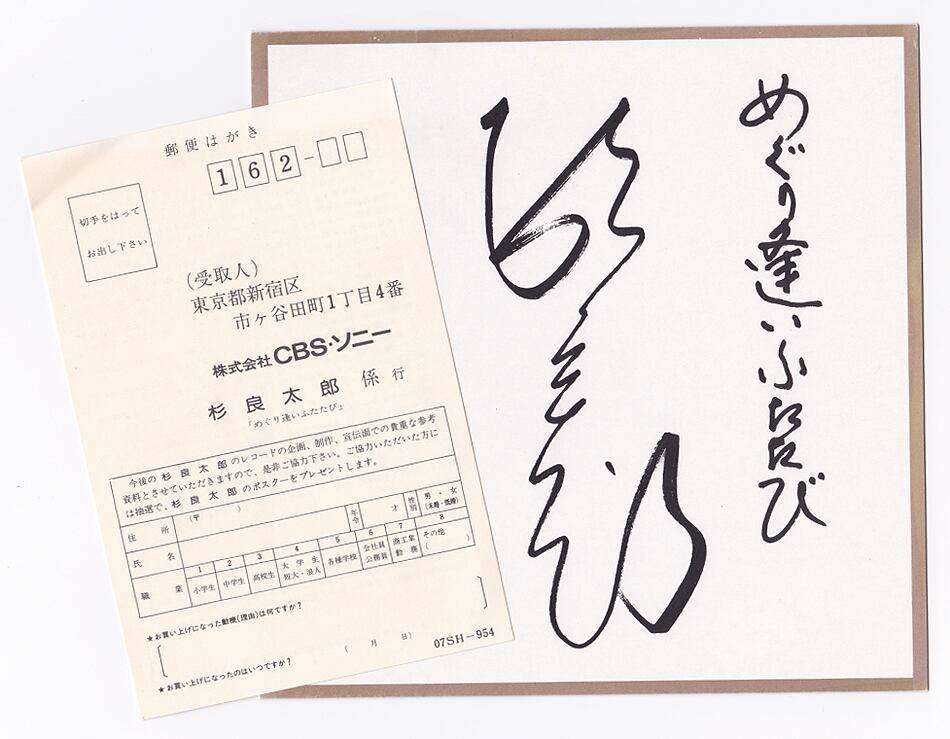 郵便はがき
162-
切手をはって
お出し下さい
(受取人)
東京都新宿区
市ヶ谷田町1丁目4番
株式会社CBS・ソニー
杉良太郎 係 行
「めぐり逢いふたたび」
今後の杉良太郎のレコードの企画、制作、宣伝面での貴重な参考
資料とさせていただきますので、是非ご協力下さい。ご協力いただいた方に
は抽選で、杉良太郎のポスターをプレゼントします。
住所 (〒 )
氏名 年令 才 性別 男・女 (未婚・既婚)
職業 1 小学生 2 中学生 3 高校生 4 大学生 短大・浪人 5 各種学校 6 会社員 公務員 7 商工業 勤務 8 その他 ( )
★お買い上げになった動機(理由)は何ですか?
★お買い上げになったのはいつですか? ( 月 日)
07SH-954
めぐり逢いふたたび